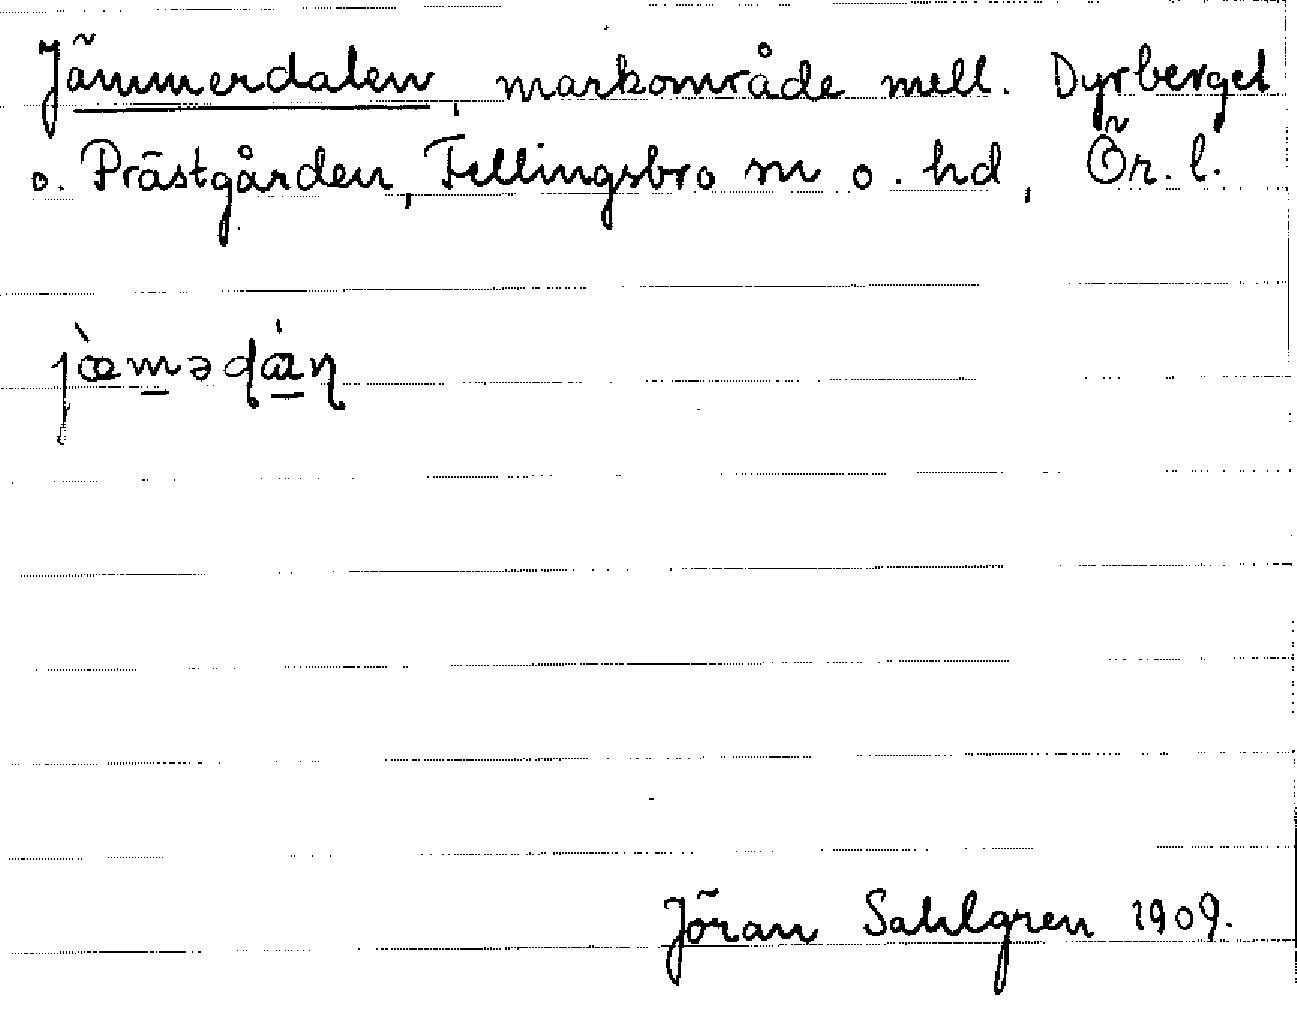 Jämmerdalen, markområde mell. Dyrberget
o. Prästgården, Fellingsbro sn o. hd, Ör. l.
jæ̀mədán
Jöran Sahlgren 1909.